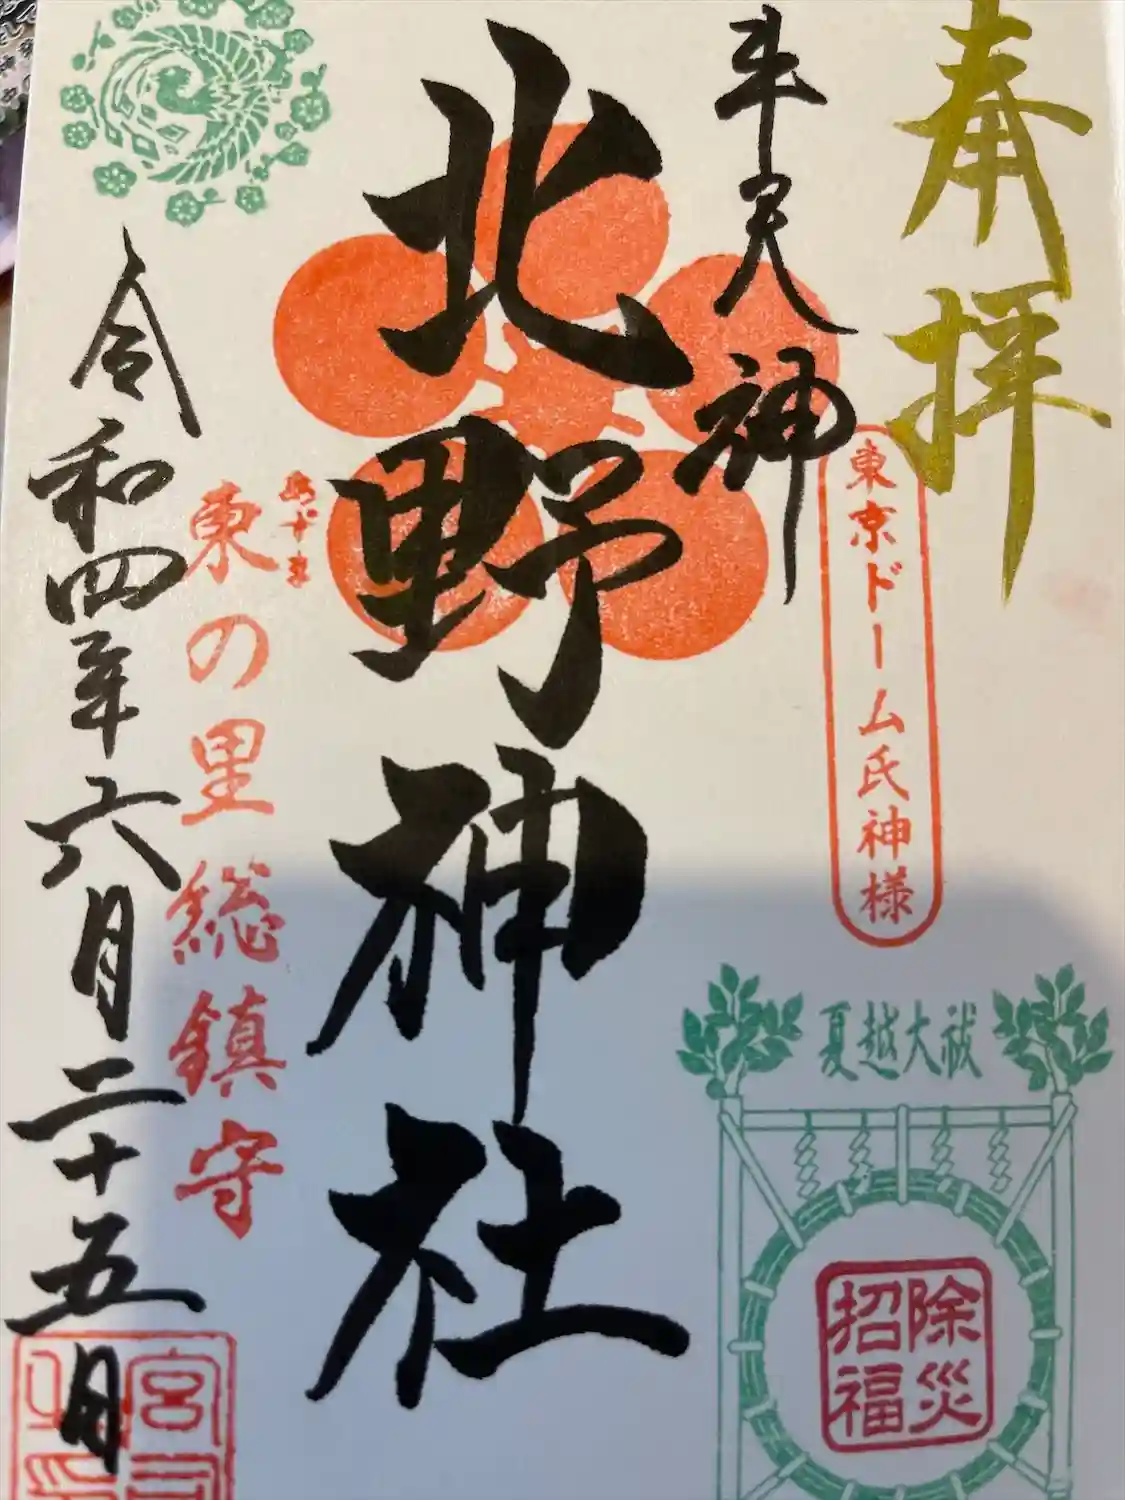 奉拝
牛天神
北野神社
東京ドーム氏神様
夏越大祓
除災
招福
東の里総鎮守
令和四年六月二十五日